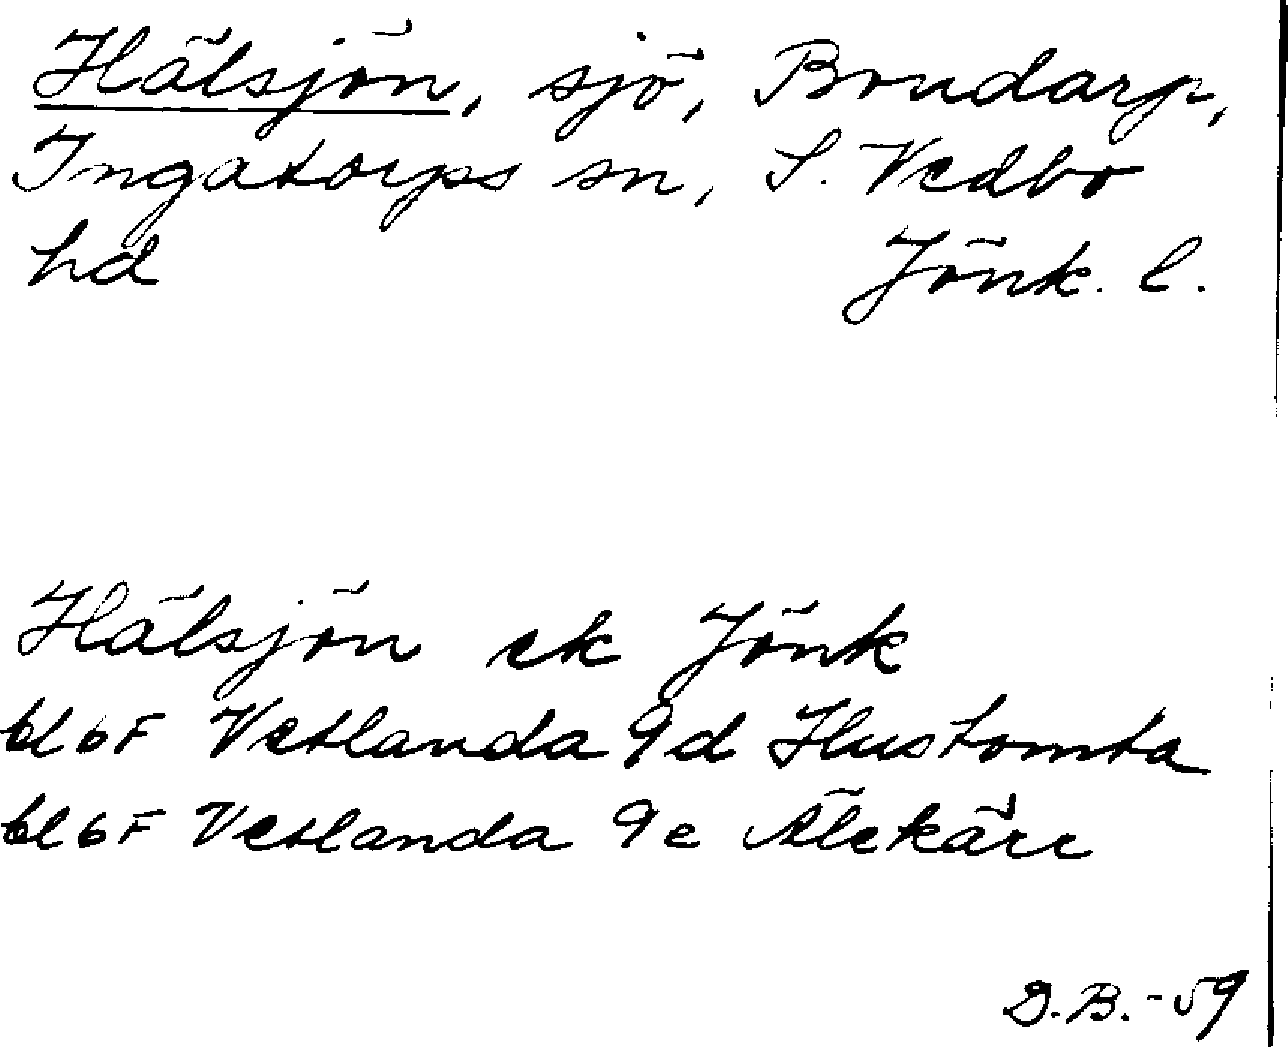 Hälsjön, sjö, Bondarp,
Ingatorps sn, S. Vedbo
hd Jönk. l.
Hälsjön ek Jönk
bl 6F Vetlanda 9d Hustomta
bl 6F Vetlanda 9e Älekärr
D.B.-59